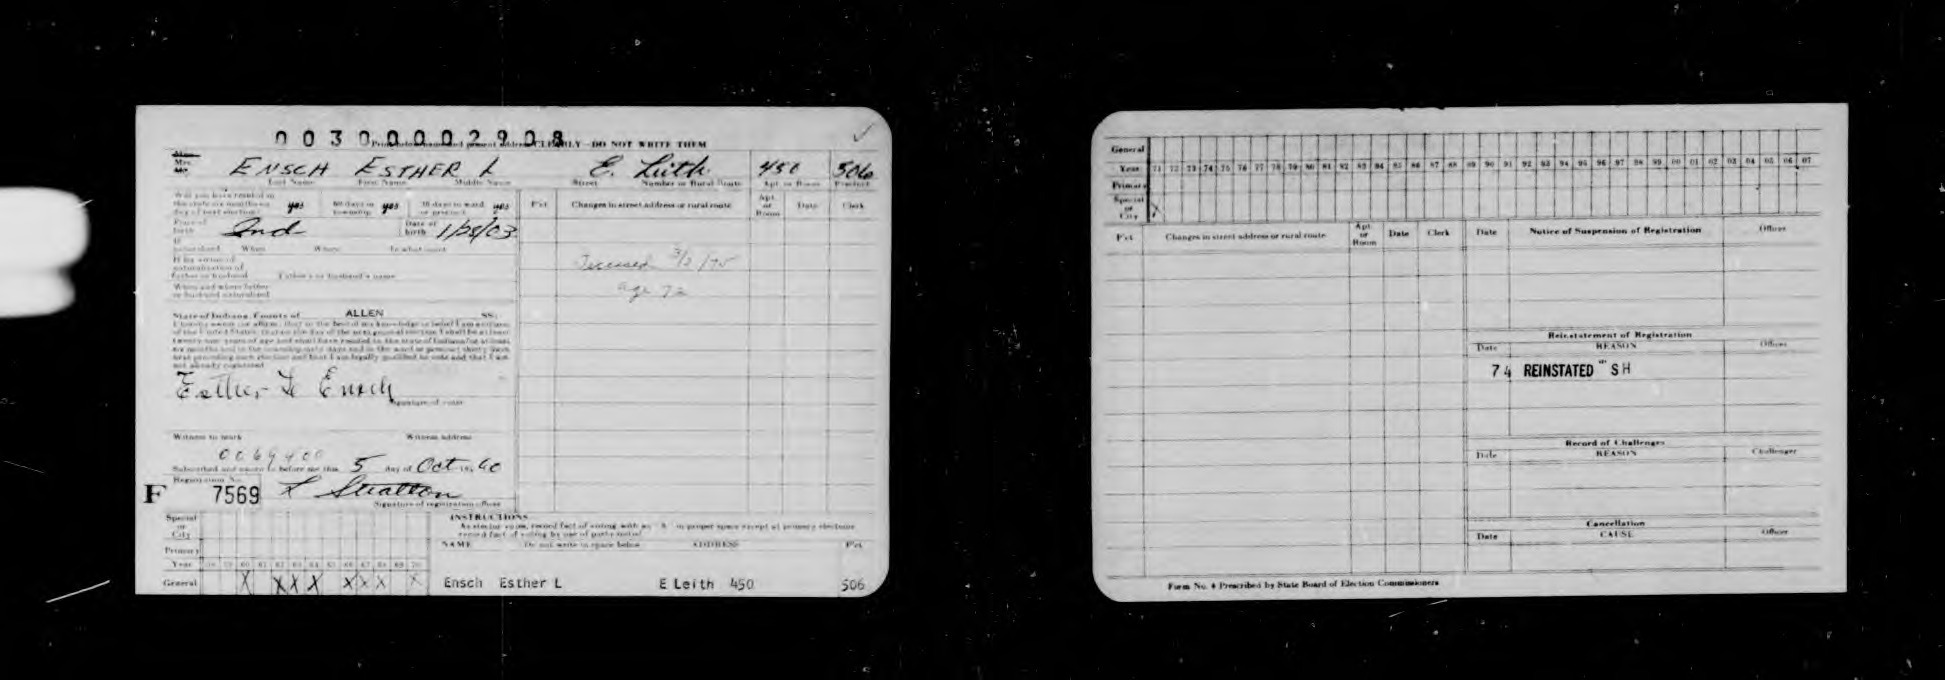 0030000002908
Print below name and present address CLEARLY—DO NOT WRITE THEM
Mrs. ENSCH ESTHER L E. Leith 450 506
Last Name First Name Middle Name Street Number or Rural Route Apt. or Room Precinct
Will you have resided in the state six months on day of next election? yes 60 days in township yes 30 days in ward or precinct yes
Place of birth Ind Date of birth 1/28/03
If naturalized When Where In what court
If by virtue of naturalization of father or husband Father's or husband's name
When and where father or husband naturalized
State of Indiana, County of ALLEN SS:
I hereby swear (or affirm) that to the best of my knowledge or belief I am a citizen
of the United States, that on the day of the next general election I shall be at least
twenty-one years of age and shall have resided in the state of Indiana for at least
six months and in the township sixty days and in the ward or precinct thirty days
next preceding such election and that I am legally qualified to vote and that I am
not already registered
Esther L Ensch
Signature of voter
Witness to mark Witness address
0069400
Subscribed and sworn to before me this 5 day of Oct 19 60
Registration No.
F 7569 L Stratton
Signature of registration officer
P'ct Changes in street address or rural route Apt. or Room Date Clerk
Deceased 3/2/75
age 72
Special or City
Primary
Year 60 61 62 63 64 65 66 67 68 69 70
General X X X X X X X X
INSTRUCTIONS
As elector votes, record fact of voting with an X in proper space except at primary elections
record fact of voting by use of party initial
NAME Do not write in space below ADDRESS P'ct
Ensch Esther L E Leith 450 506
General
Year 71 72 73 74 75 76 77 78 79 80 81 82 83 84 85 86 87 88 89 90 91 92 93 94 95 96 97 98 99 00 01 02 03 04 05 06 07
Primary
Special or City
P'ct Changes in street address or rural route Apt. or Room Date Clerk
Date Notice of Suspension of Registration Officer
Reinstatement of Registration
Date REASON Officer
74 REINSTATED SH
Record of Challenges
Date REASON Challenger
Cancellation
Date CAUSE Officer
Form No. 4 Prescribed by State Board of Election Commissioners